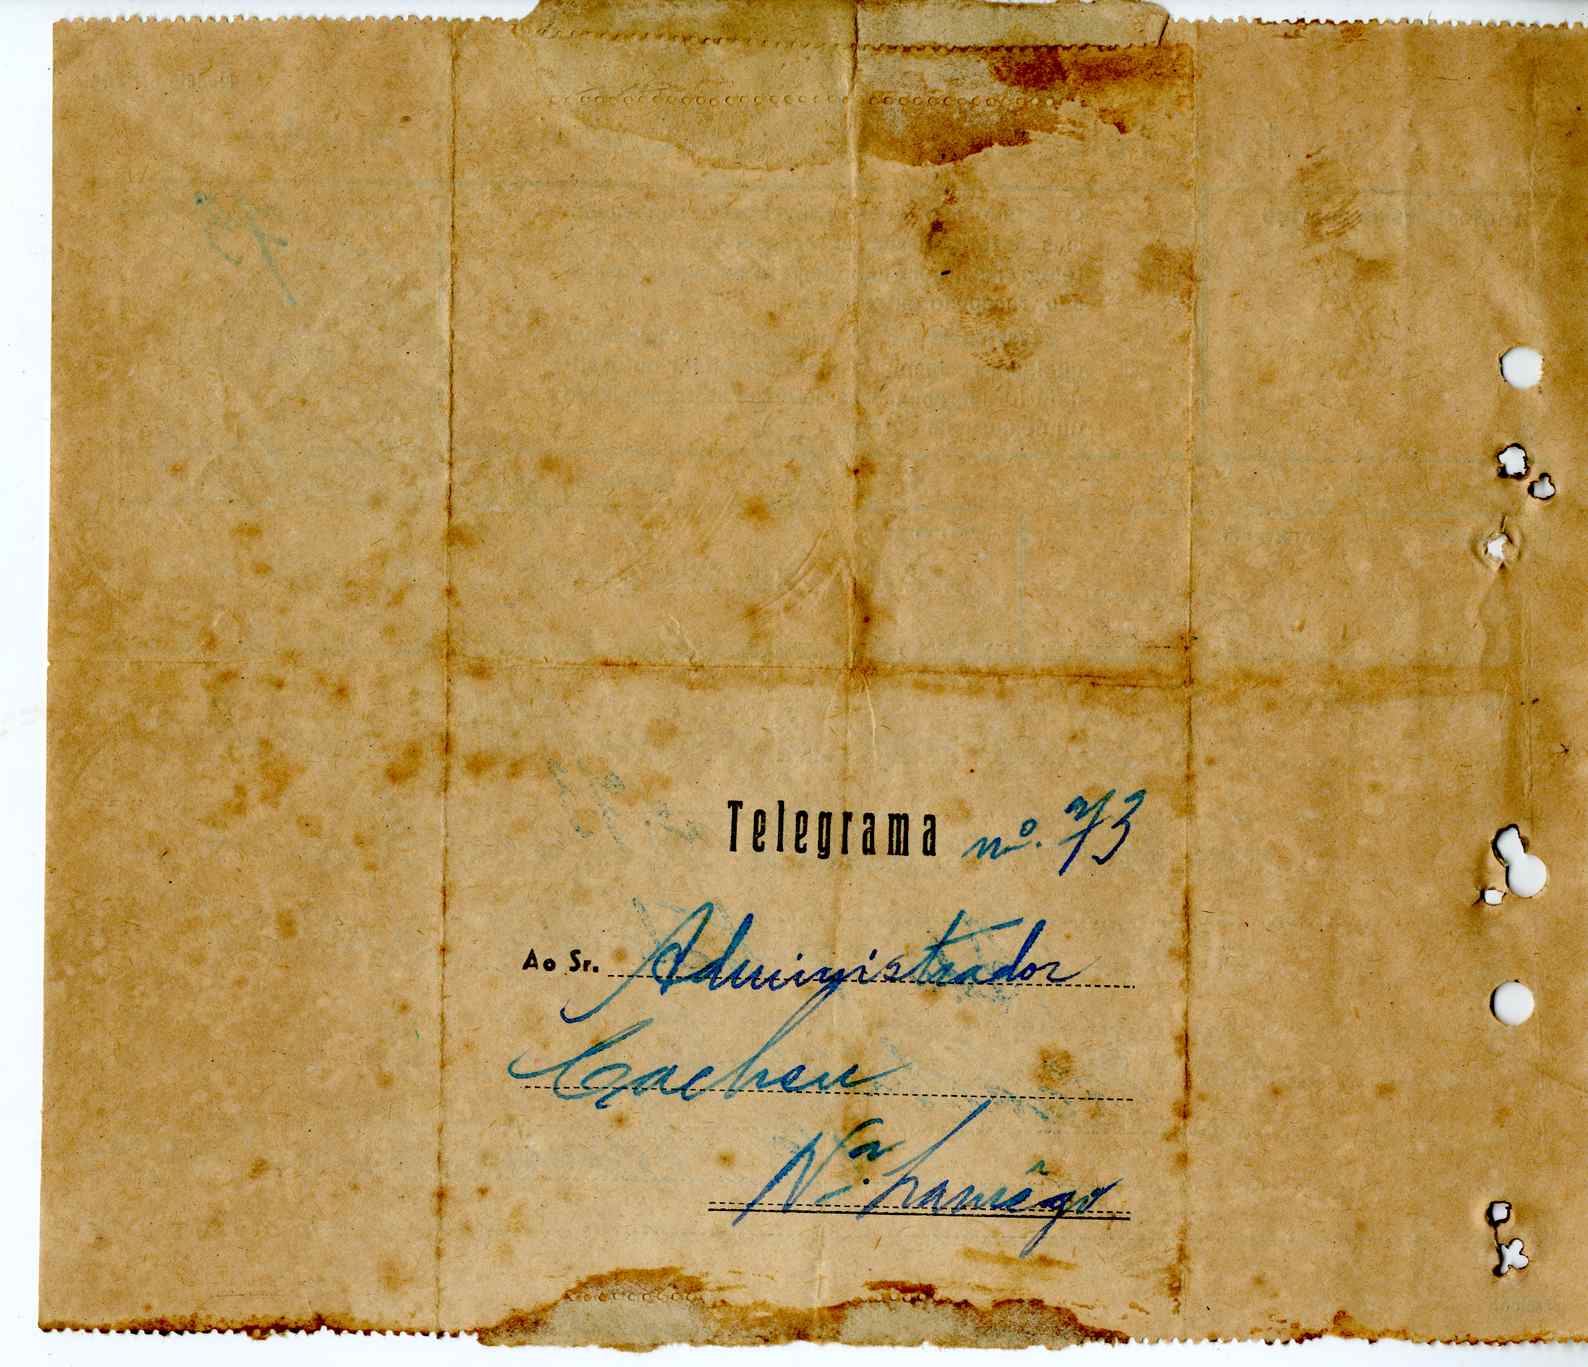 Telegrama nº. 73
Ao Sr. Administrador
Cacheu
Nª. Lamêgo